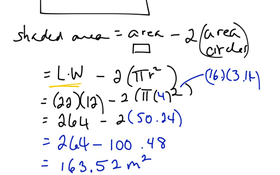 shaded area = area - 2 (area circles)
= L·W - 2(πr²)
= (22)(12) - 2(π(4)²) (16)(3.14)
= 264 - 2(50.24)
= 264 - 100.48
= 163.52 m²